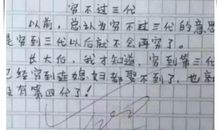 穷不过三代
以前，总认为穷不过三代的意思
是穷到三代以后就不会再穷了。
长大后，我才知道，穷到第三代
已经穷到连媳妇都娶不到了，也就
没有第四代了！